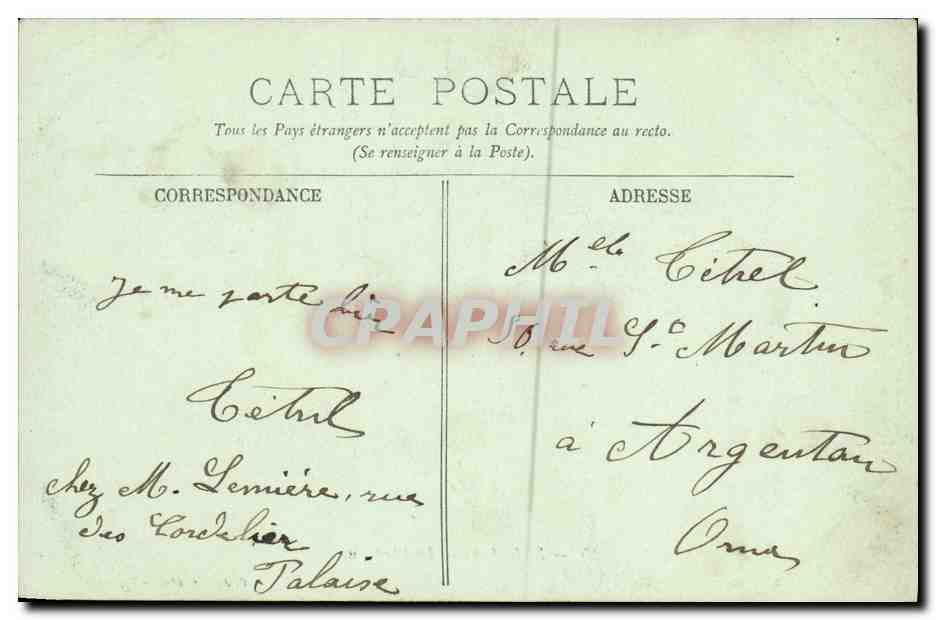 CARTE POSTALE
Tous les Pays étrangers n'acceptent pas la Correspondance au recto.
(Se renseigner à la Poste).
CORRESPONDANCE
je me porte bien
chez M. Lemière, rue
des Cordelier
Falaise
ADRESSE
Melle
rue St Martin
à Argentan
Orne
CPAPHIL